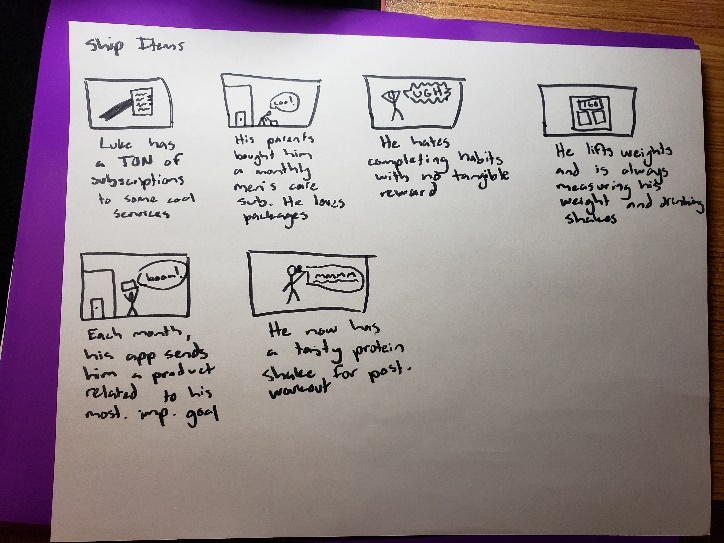 Ship Items
Luke has
a TON of
subscriptions
to some cool
services
cool!
His parents
bought him
a monthly
men's care
sub. He loves
packages
UGH!
He hates
completing habits
with no tangible
reward
He lifts weights
and is always
measuring his
weight and drinking
shakes
boom!
Each month,
his app sends
him a product
related to his
most. imp. goal
mmmm
He now has
a tasty protein
shake for post.
workout